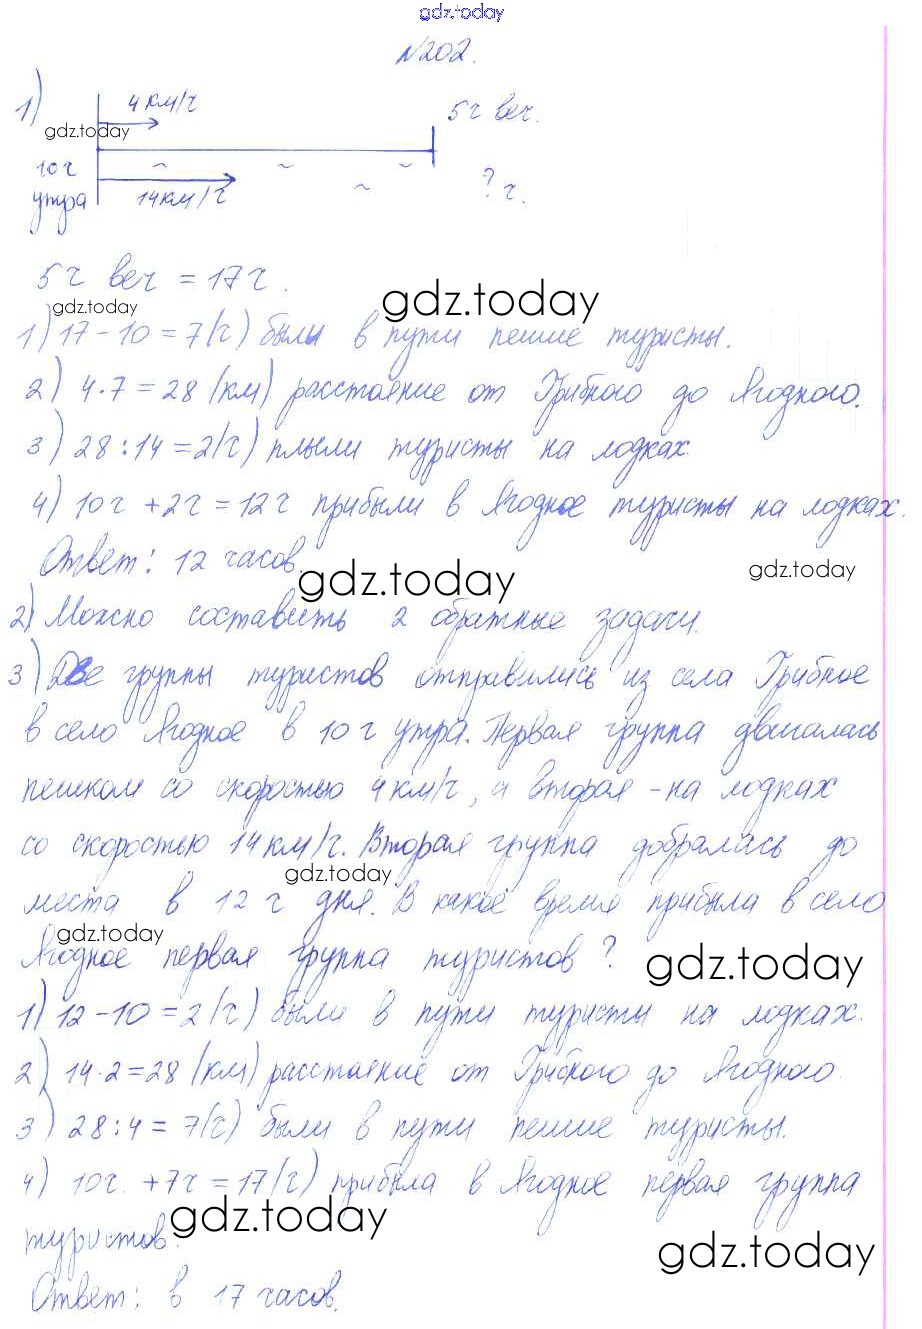 gdz.today
№202.
1) 4км/ч 5ч веч.
gdz.today
10ч
утра 14км/ч ? ч.
5ч веч = 17ч.
gdz.today
gdz.today
1) 17-10=7(ч) были в пути пешие туристы.
2) 4·7=28 (км) расстояние от Грибного до Ягодного.
3) 28:14=2(ч) плыли туристы на лодках
4) 10ч +2ч=12ч прибыли в Ягодное туристы на лодках.
Ответ: 12 часов.
gdz.today
gdz.today
2) Можно составить 2 обратные задачи.
3) Две группы туристов отправились из села Грибное
в село Ягодное в 10 ч утра. Первая группа двигалась
пешком со скоростью 4км/ч, а вторая -на лодках
со скоростью 14км/ч. Вторая группа добралась до
gdz.today
места в 12 ч дня. В какое время прибыла в село
gdz.today
Ягодное первая группа туристов?
gdz.today
1) 12-10=2(ч) были в пути туристы на лодках.
2) 14·2=28 (км) расстояние от Грибного до Ягодного.
3) 28:4= 7(ч) были в пути пешие туристы.
4) 10ч. +7ч =17(ч) прибыла в Ягодное первая группа
gdz.today
туристов.
gdz.today
Ответ: в 17 часов.